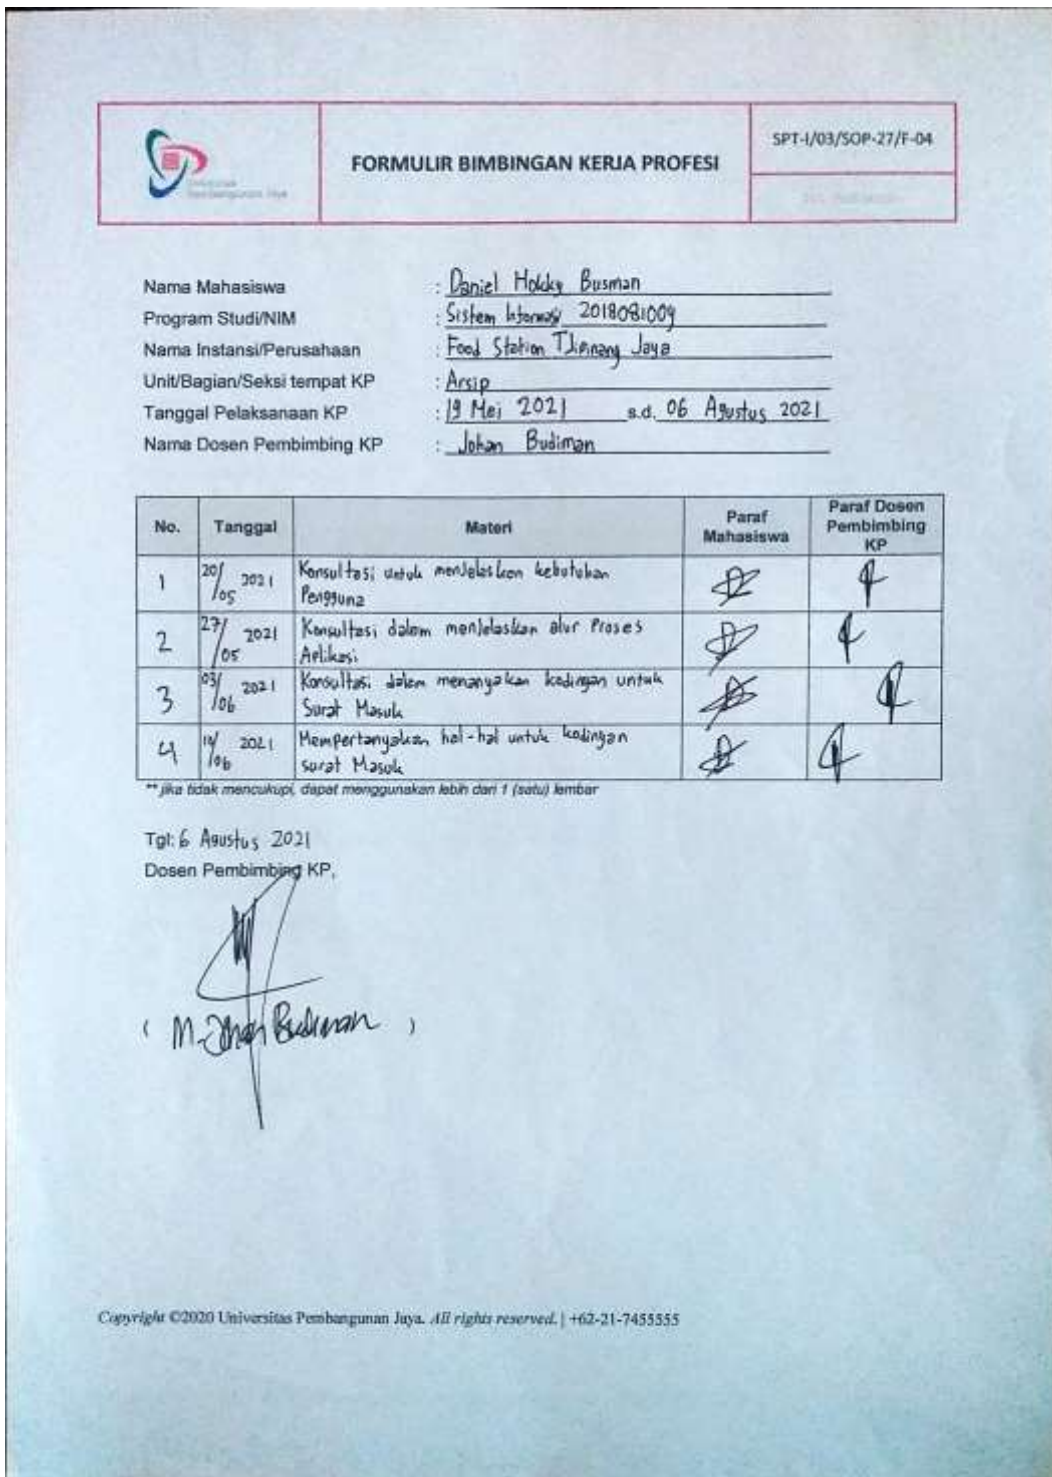 Universitas
Pembangunan Jaya
FORMULIR BIMBINGAN KERJA PROFESI
SPT-I/03/SOP-27/F-04
Nama Mahasiswa : Daniel Hokky Busman
Program Studi/NIM : Sistem Informasi 2018081009
Nama Instansi/Perusahaan : Food Station Tjipinang Jaya
Unit/Bagian/Seksi tempat KP : Arsip
Tanggal Pelaksanaan KP : 19 Mei 2021 s.d. 06 Agustus 2021
Nama Dosen Pembimbing KP : Johan Budiman
No. Tanggal Materi Paraf Mahasiswa Paraf Dosen Pembimbing KP
1 20/05 2021 Konsultasi untuk menjelaskan kebutuhan
Pengguna
2 27/05 2021 Konsultasi dalam menjelaskan alur Proses
Aplikasi
3 03/06 2021 Konsultasi dalam menanyakan kodingan untuk
Surat Masuk
4 /06 2021 Mempertanyakan hal-hal untuk kodingan
surat Masuk
** jika tidak mencukupi, dapat menggunakan lebih dari 1 (satu) lembar
Tgl: 6 Agustus 2021
Dosen Pembimbing KP,
( M. Johan Budiman )
Copyright ©2020 Universitas Pembangunan Jaya. All rights reserved. | +62-21-7455555